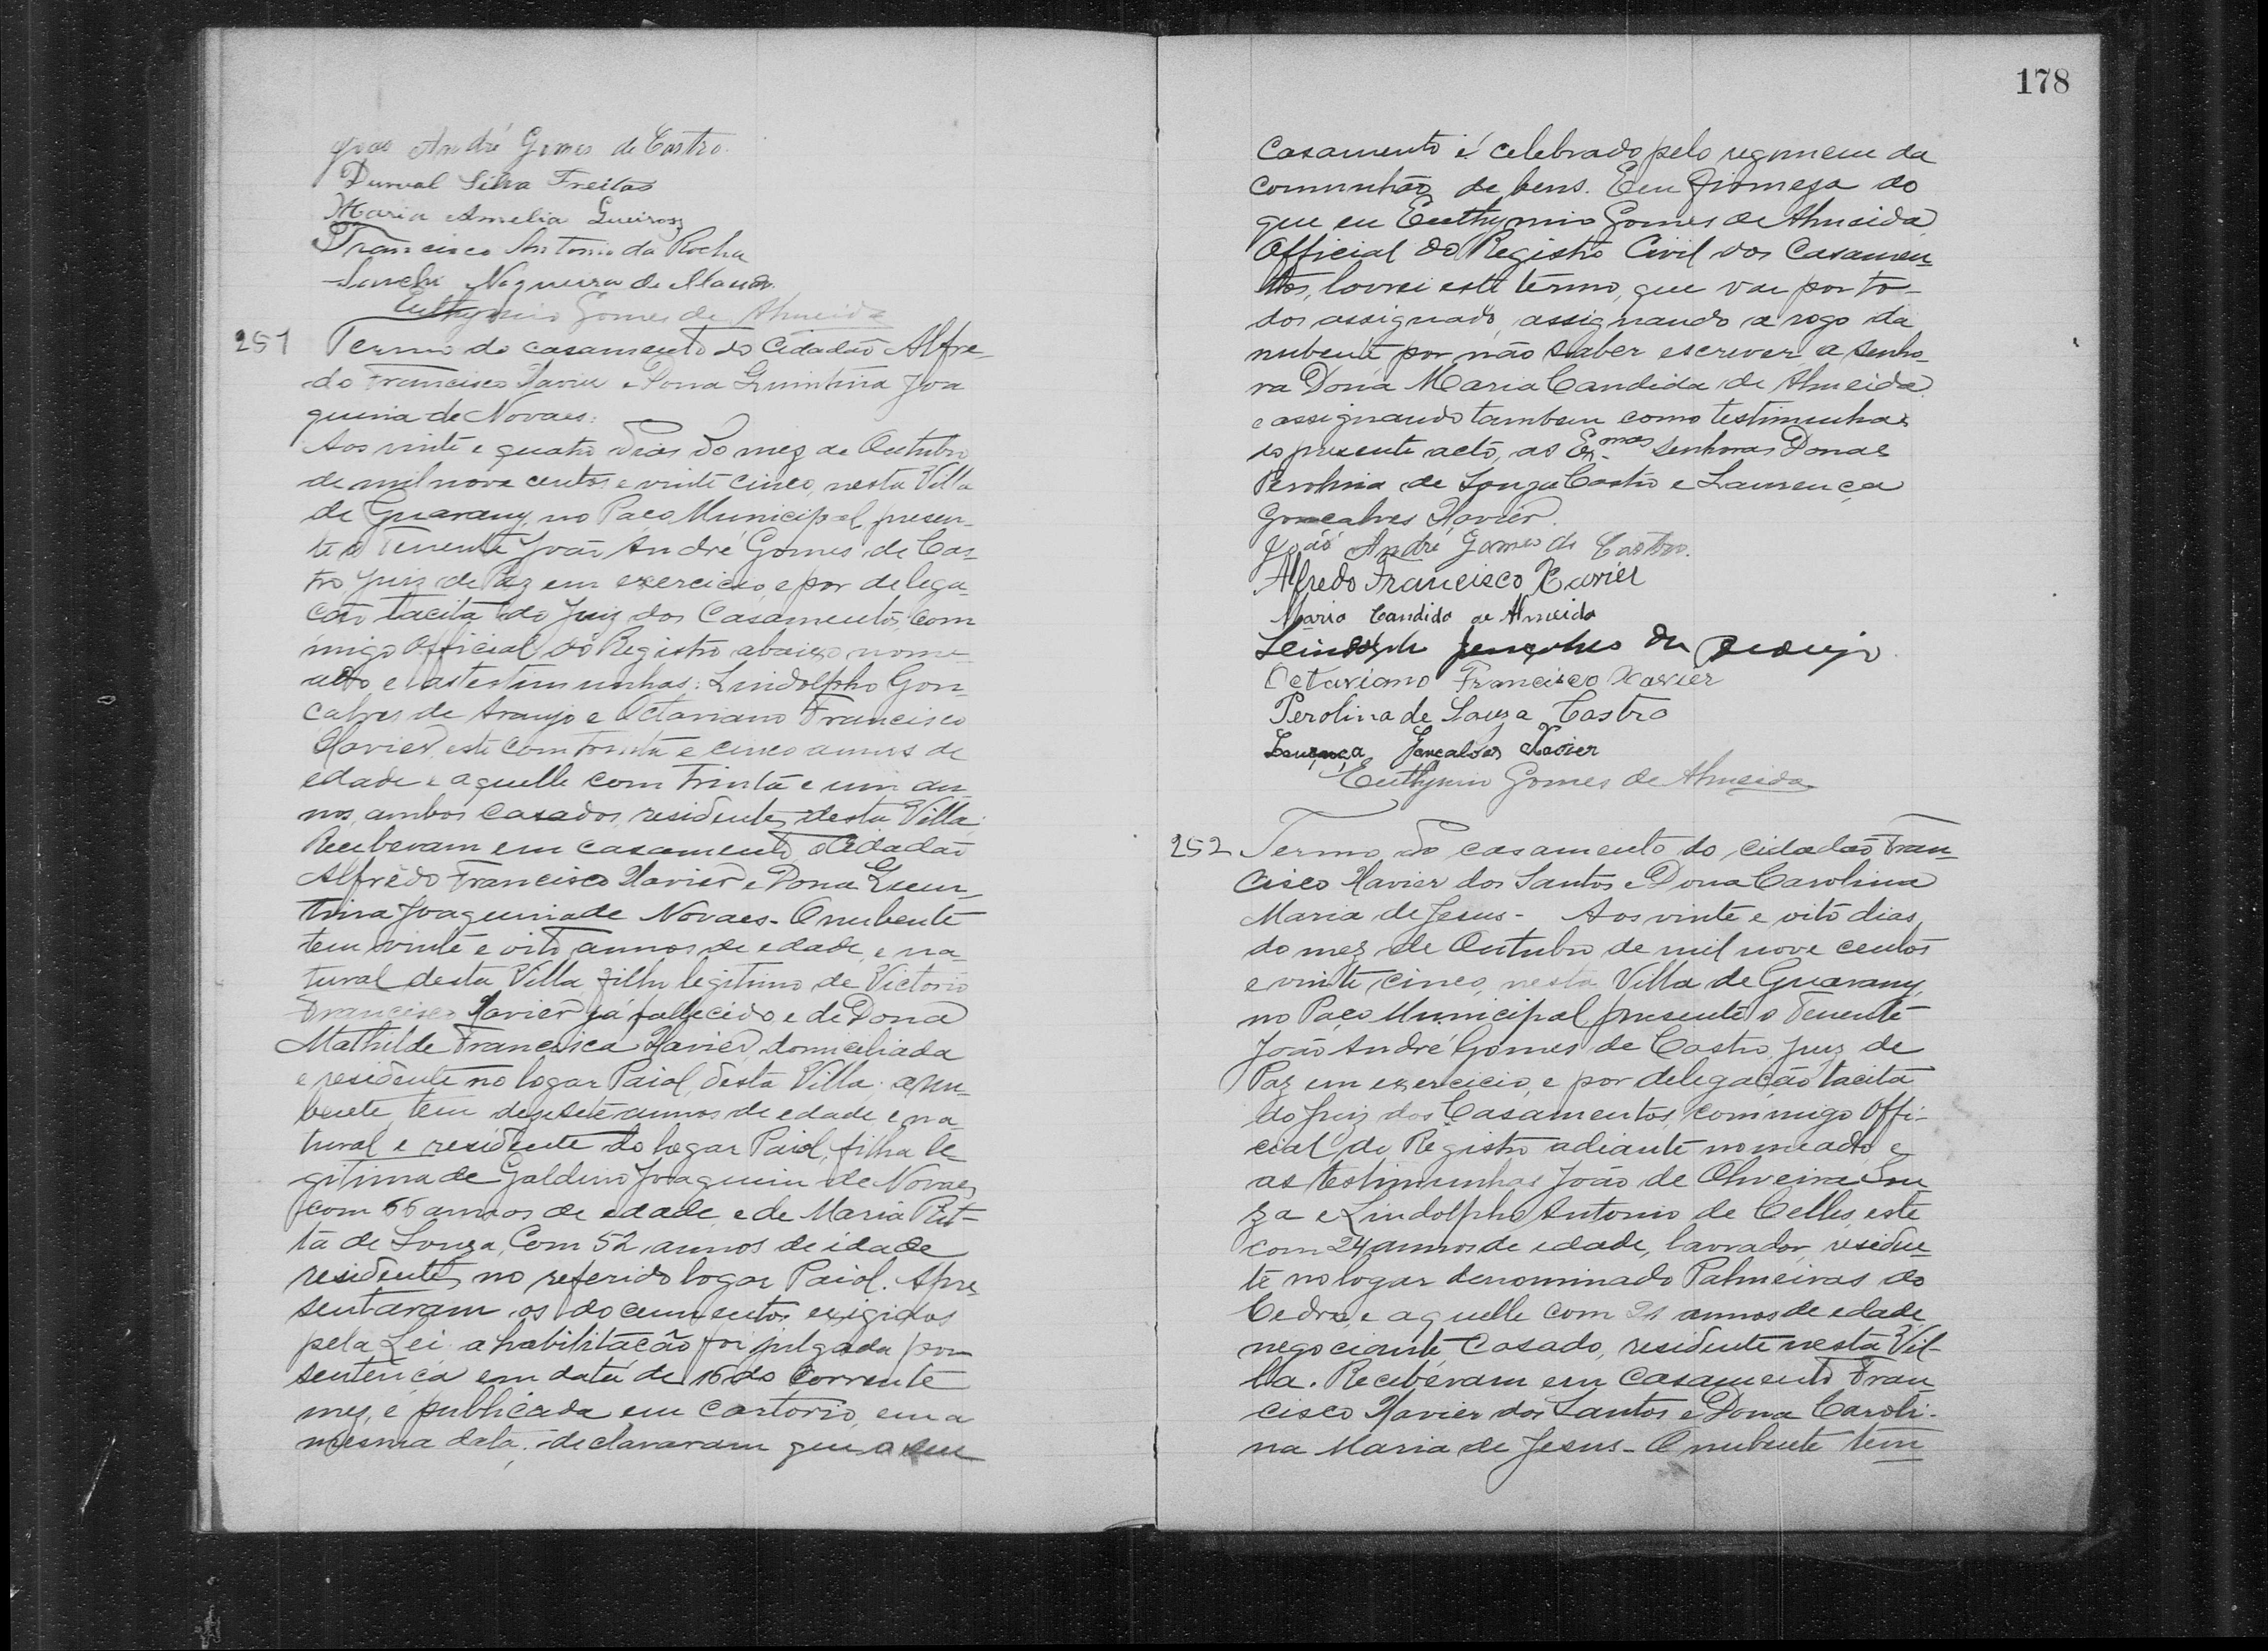 João André Gomes de Castro.
Durval Silva Freitas
Maria Amelia Queiroz
Francisco Antonio da Rocha
Nogueira de
Euthymio Gomes de Almeida
251 Termo do casamento do Cidadão Alfre-
do Francisco Xavier e Dona Quintina Joa
quina de Novaes:
Aos vinte e quatro dias do mez de Outubro
de mil nove centos e vinte cinco, nesta Villa
de Guarany, no Paço Municipal, presen-
te o Tenente João André Gomes de Cas-
tro, Juiz de Paz em exercicio, e por delega-
cão tacita do Juiz dos Casamentos, com
migo Official do Registro abaixo nome-
ado e as testemunhas: Lindolpho Gon-
calves de Araujo e Octaviano Francisco
Xavier, este com trinta e cinco annos de
edade e aquelle com trinta e um an-
nos, ambos casados, residentes desta Villa.
Receberam em casamento o Cidadão
Alfredo Francisco Xavier e Dona Quin-
tina Joaquina de Novaes. O nubente
tem vinte e oito annos de edade, e na-
tural desta Villa, filho legitimo de Victorio
Francisco Xavier já fallecido, e de Dona
Mathilde Francisca Xavier, domiciliada
e residente no logar Paiol, desta Villa; a nu-
bente, tem desesete annos de edade, e na-
tural e residente do logar Paiol, filha le
gitima de Galdino Joaquim de Novaes
com 66 annos de edade, e de Maria Rit-
ta de Souza, com 52 annos de idade
residentes no referido logar Paiol. Apre-
sentaram os documentos exigidos
pela Lei. a habilitacão foi julgada por
sentença em data de 16 do corrente
mez, e publicada em cartorio, em a
mesma data; declararam que o seu
178
Casamento é celebrado pelo regimem da
Communhão de bens. Em firmeza do
que eu Euthymio Gomes de Almeida
Official do Registro Civil dos Casamen-
tos, lavrei este termo, que vae por to-
dos assignado, assignando a rogo da
nubente por não saber escrever a senho-
ra Dona Maria Candida de Almeida
e assignando tambem como testimunhas
do presente acto, as Ex.mas Senhoras Donas
Perolina de Souza Castro e Laurença
Gonçalves Xavier.
João André Gomes de Castro.
Alfredo Francisco Xavier
Maria Candida de Almeida
Lindolpho Gonçalves de Araujo
Octaviano Francisco Xavier
Perolina de Souza Castro
Laurença Gonçalves Xavier
Euthymio Gomes de Almeida
252 Termo do casamento do cidadão Fran-
cisco Xavier dos Santos e Dona Carolina
Maria de Jesus- Aos vinte e oito dias
do mez de Outubro de mil nove centos
e vinte cinco, nesta Villa de Guarany,
no Paço Municipal, presente o Tenente
João André Gomes de Castro, Juiz de
Paz em exercicio, e por delegação tacita
do Juiz dos Casamentos, commigo Offi-
cial do Registro adiante nomeado e
as testimunhas João de Oliveira Sou
za e Lindolpho Antonio de Celles, este
com 24 annos de edade, lavrador, residen-
te no logar denominado Palmeiras do
Cedro, e aquelle com annos de edade
negociante, Casado, residente nesta Vil-
la. Receberam em casamento Fran-
cisco Xavier dos Santos e Dona Caroli-
na Maria de Jesus- O nubente tem